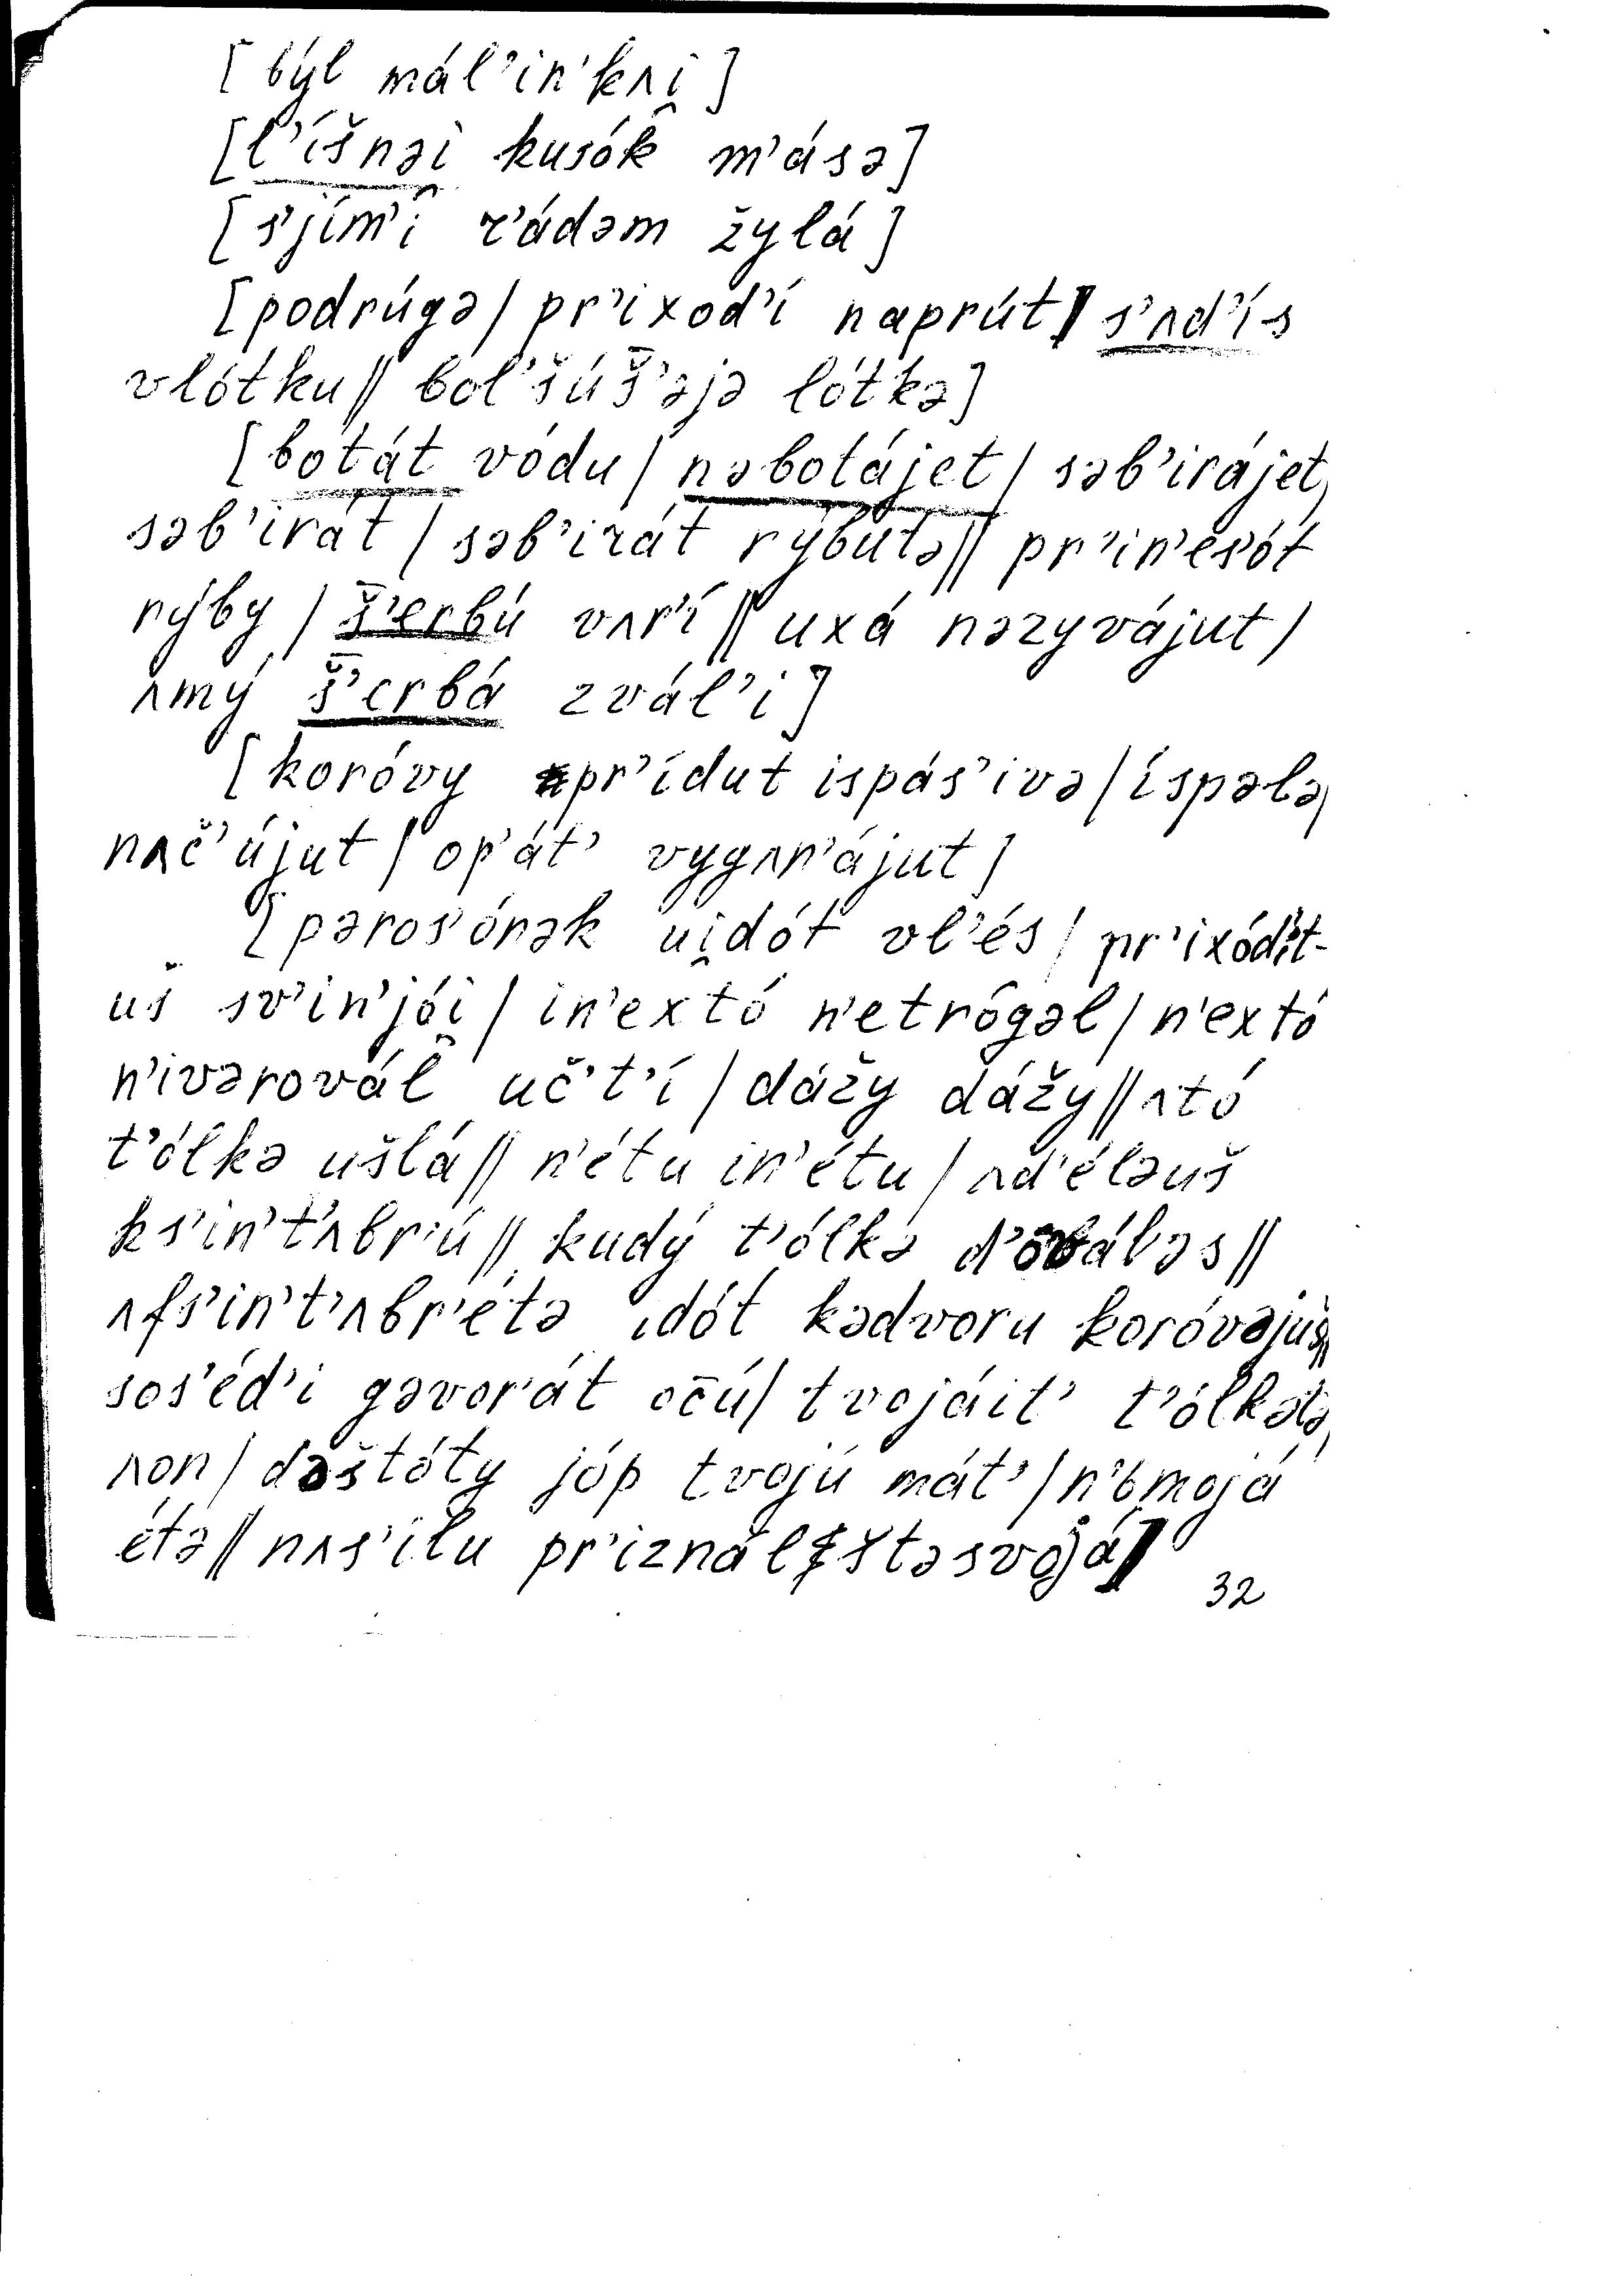 [býl mál’in’kʌi̯]
[l’íšnəi̯ kusók m’ásə]
[s’jím’i r’ádəm žylá]
[podrúgə/ pr’ixod’í naprút/ s’ʌd’ís
vlótku// bol’šúš̄’əjə lótkə]
[botát vódu/ nəbotájet/ səb’irájet/
səb’irát/ səb’irát rýbutə// pr’in’es’ót
rýby/ š̄’erbú vʌr’í// uxá nəzyvájut/
ʌmý š̄’erbá zvál’i]
[koróvy pr’ídut ispás’ivə/ íspələ/
nʌč’újut/ op’át’ vygʌn’ájut]
[pəros’ónək ui̯dót vl’és/ pr’ixód’it-
uš sv’in’jói̯/ in’extó n’etrógəl/ n’extó
n’ivərovál uč’t’í/ dážy dážy// ʌtó
t’ólkə ušlá// n’étu in’étu/ ʌd’éləuš
ks’in’t’ʌbr’ú// kudý t’ólkə d’ováləs//
ʌfs’in’t’ʌbr’étə idót kədvoru koróvəjuš//
sos’éd’i gəvor’át oču/ tvojáit’ t’ólkətə/
ʌon/ dəštóty jóp tvojú mát’/ n’ьmojá
étə// nʌs’ílu pr’iznál štəsvojá]
32